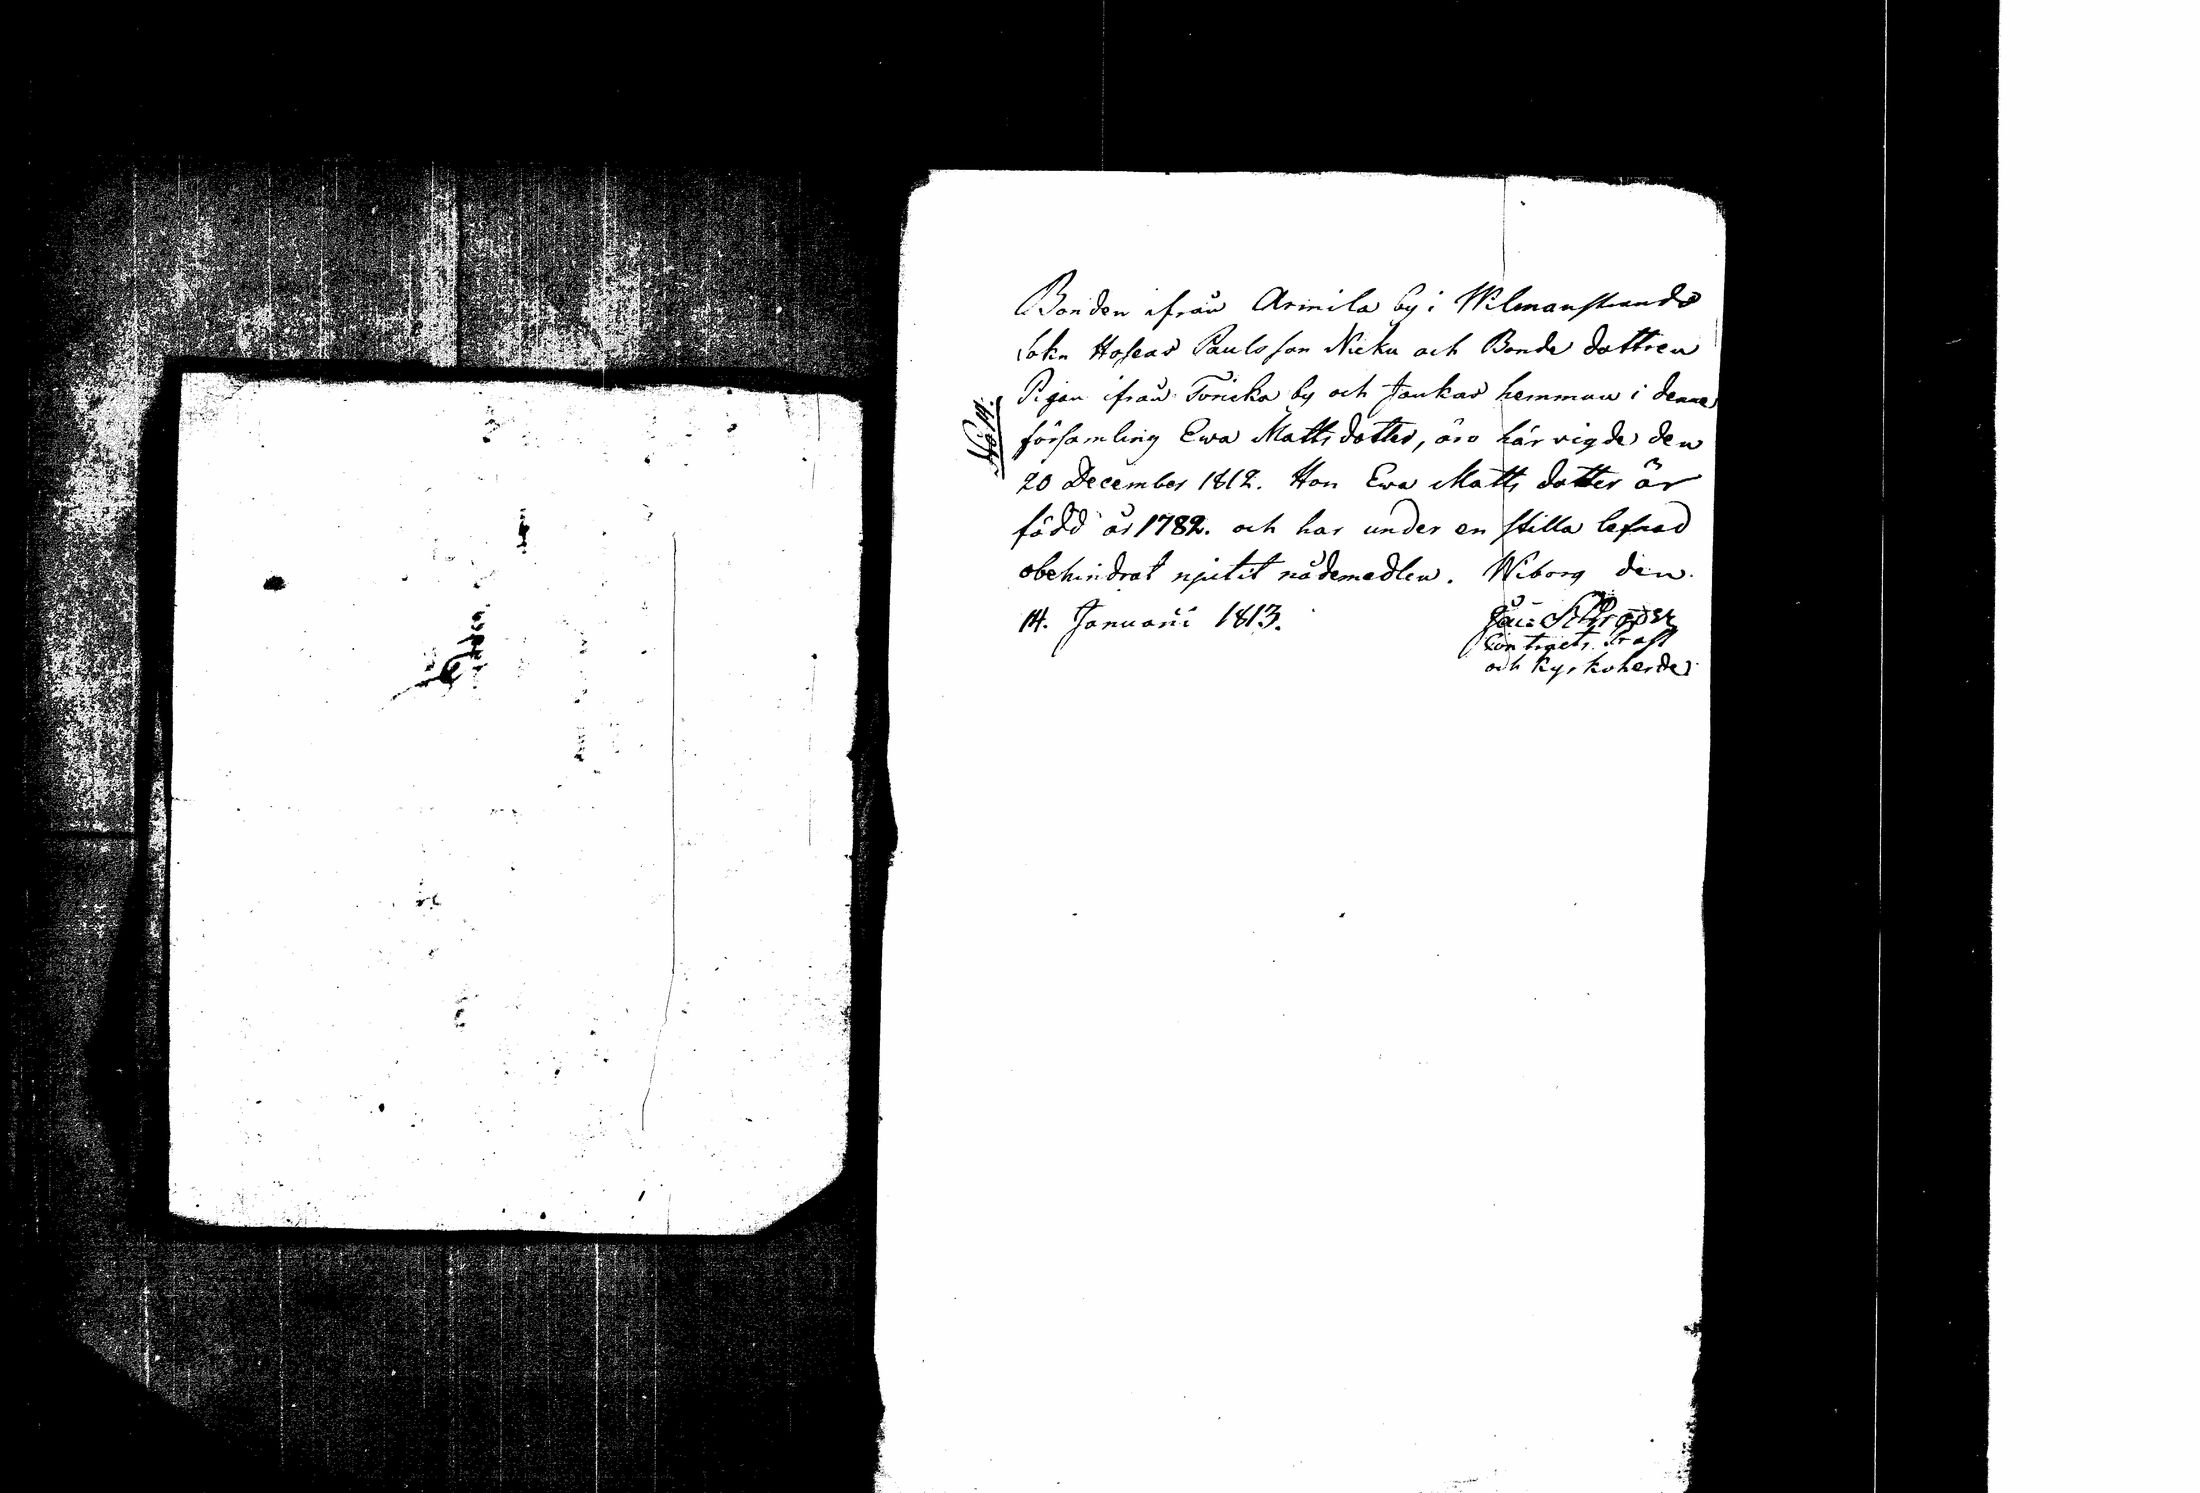 Bonden ifrån Armila by i Wilmanstrands
Sokn Hoseas Paulsson Nicku och Bonde dottren
Pigan ifrån Toricka by och Jaukas hemman i denna
församling Ewa Mattsdotter, äro här vigde den
20 December 1812. Hon Ewa Matts dotter är
född år 1782. och har under en stilla lefnad
obehindrat njutit nådemedlen. Wiborg den
14. Januarii 1813.
Contracts Prost
och Kyrkoherde
No 14.